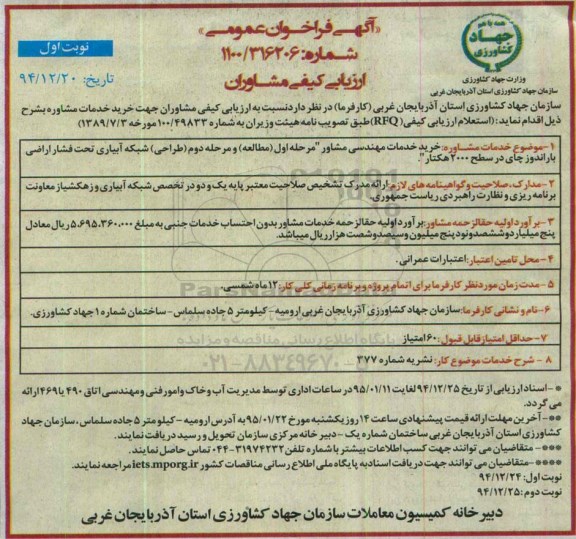 همه با هم
جهاد
کشاورزی
وزارت جهاد کشاورزی
سازمان جهاد کشاورزی استان آذربایجان غربی
«آگهی فراخوان عمومی»
شماره: ۱۱۰۰/۳۱۶۲۰۶
ارزیابی کیفی مشاوران
نوبت اول
تاریخ: ۹۴/۱۲/۲۰
سازمان جهاد کشاورزی استان آذربایجان غربی (کارفرما) در نظر دارد نسبت به ارزیابی کیفی مشاوران جهت خرید خدمات مشاوره بشرح
ذیل اقدام نماید: (استعلام ارزیابی کیفی (RFQ) طبق تصویب نامه هیئت وزیران به شماره ۱۰۰/۴۹۸۳۳ مورخه ۱۳۸۹/۷/۳)
۱- موضوع خدمات مشاوره: خرید خدمات مهندسی مشاور "مرحله اول (مطالعه) و مرحله دوم (طراحی) شبکه آبیاری تحت فشار اراضی
باراندوز چای در سطح ۲۰۰۰ هکتار".
۲- مدارک، صلاحیت و گواهینامه های لازم: ارائه مدرک تشخیص صلاحیت معتبر پایه یک و دو در تخصص شبکه آبیاری و زهکشی از معاونت
برنامه ریزی و نظارت راهبردی ریاست جمهوری.
۳- برآورد اولیه حق الزحمه مشاور: برآورد اولیه حق الزحمه خدمات مشاور بدون احتساب خدمات جنبی به مبلغ ۵,۶۹۵,۳۶۰,۰۰۰ ریال معادل
پنج میلیارد و ششصد و نود و پنج میلیون و سیصد و شصت هزار ریال میباشد.
۴- محل تامین اعتبار: اعتبارات عمرانی.
۵- مدت زمان مورد نظر کارفرما برای اتمام پروژه و برنامه زمانی کلی کار: ۱۲ ماه شمسی.
۶- نام و نشانی کارفرما: سازمان جهاد کشاورزی آذربایجان غربی ارومیه - کیلومتر ۵ جاده سلماس - ساختمان شماره ۱ جهاد کشاورزی.
۷- حداقل امتیاز قابل قبول: ۶۰ امتیاز
۸- شرح خدمات موضوع کار: نشریه شماره ۳۷۷
*- اسناد ارزیابی از تاریخ ۹۴/۱۲/۲۵ لغایت ۹۵/۰۱/۱۱ در ساعات اداری توسط مدیریت آب و خاک و امور فنی و مهندسی اتاق ۴۹۰ یا ۴۶۹ ارائه
می گردد.
**- آخرین مهلت ارائه قیمت پیشنهادی ساعت ۱۴ روز یکشنبه مورخ ۹۵/۰۱/۲۲ به آدرس ارومیه - کیلومتر ۵ جاده سلماس، سازمان جهاد
کشاورزی استان آذربایجان غربی ساختمان شماره یک - دبیرخانه مرکزی سازمان تحویل و رسید دریافت نمایند.
***- متقاضیان می توانند جهت کسب اطلاعات بیشتر با شماره تلفن ۳۱۹۷۴۲۳۲-۰۴۴ تماس حاصل نمایند.
****- متقاضیان می توانند جهت دریافت اسناد به پایگاه ملی اطلاع رسانی مناقصات کشور iets.mporg.ir مراجعه نمایند.
نوبت اول: ۹۴/۱۲/۲۴
نوبت دوم: ۹۴/۱۲/۲۵
دبیرخانه کمیسیون معاملات سازمان جهاد کشاورزی استان آذربایجان غربی
پایگاه اطلاع رسانی مناقصه و مزایده
۰۲۱-۸۸۳۴۹۶۷۰